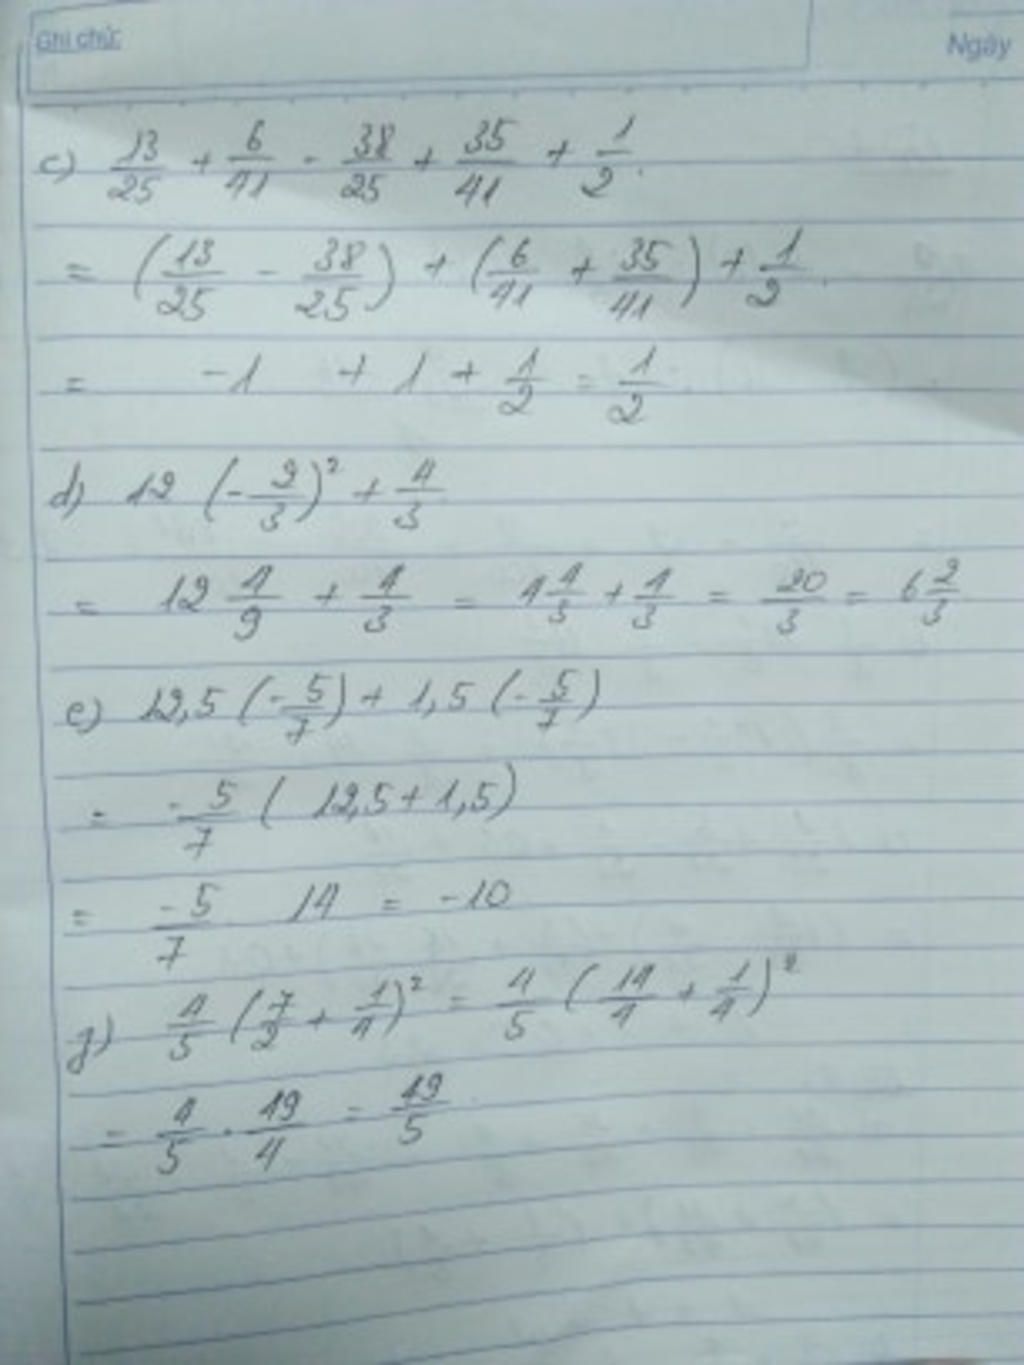 Ghi chú:
Ngày
c) 13/25 + 6/41 - 38/25 + 35/41 + 1/2.
= (13/25 - 38/25) + (6/41 + 35/41) + 1/2.
= -1 + 1 + 1/2 = 1/2.
d) 12 (-2/3)² + 4/3
= 12 4/9 + 4/3 = 4 4/3 + 4/3 = 20/3 = 6 2/3
e) 12,5 (-5/7) + 1,5 (-5/7)
= -5/7 ( 12,5 + 1,5)
= -5/7 14 = -10
g) 4/5 (7/2 + 1/4)² = 4/5 (14/4 + 1/4)²
= 4/5 . 49/4 = 49/5